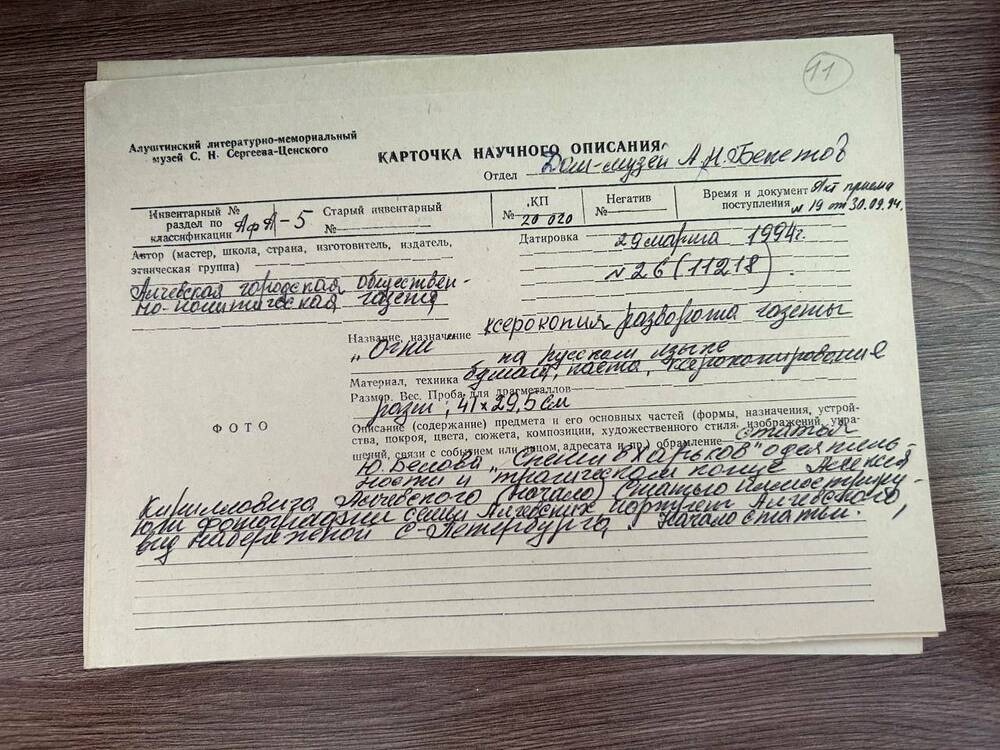 11
Алуштинский литературно-мемориальный
музей С. Н. Сергеева-Ценского
КАРТОЧКА НАУЧНОГО ОПИСАНИЯ
Отдел Дом-музей А.Н. Бекетов
Инвентарный №
раздел по
классификации АфА-5
Старый инвентарный
№
КП
№ 20 020
Негатив
№
Время и документ Акт приема
поступления № 19 от 30.09.94.
Автор (мастер, школа, страна, изготовитель, издатель,
этническая группа)
Алчевская городская обществен-
но-политическая газета
Датировка 29 марта 1994г.
№ 26 (11218).
Название, назначение ксерокопия разворота газеты
„Огни на русском языке
Материал, техника бумага, паста, ксерокопирование
Размер. Вес. Проба для драгметаллов
разм; 41×29,5 см
ФОТО
Описание (содержание) предмета и его основных частей (формы, назначения, устрой-
ства, покроя, цвета, сюжета, композиции, художественного стиля, изображений, укра-
шений, связи с событием или лицом, адресата и пр.) обрамление статья
Ю. Белова „Спеши в Харьков" о деятель-
ности и трагическом конце Алексея
Кирилловича Алчевского (начало) Статью иллюстриру-
юли фотографии семьи Алчевских портрет Алчевского,
вид набережной С-Петербурга, Начало статьи.